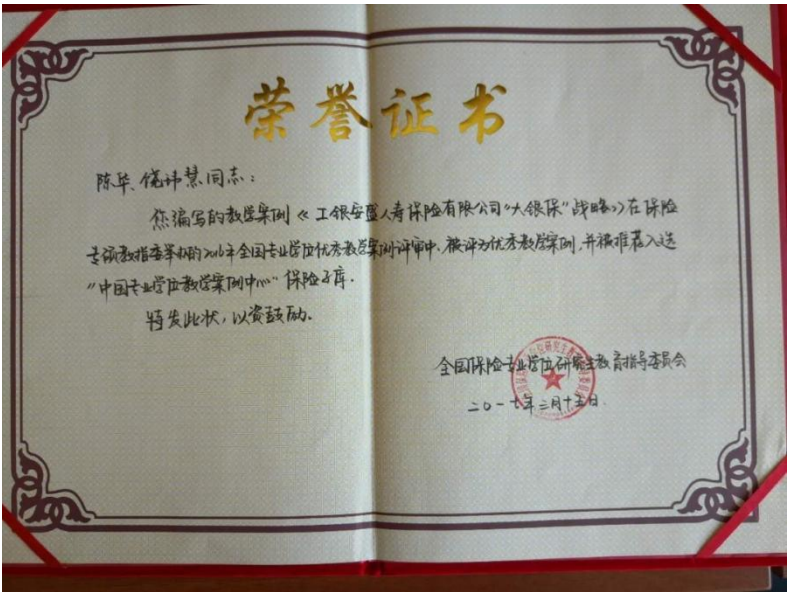 荣誉证书
陈华、饶玮慧同志：
您编写的教学案例《工银安盛人寿保险有限公司“大银保”战略》在保险
专硕教指委举办的2016年全国专业学位优秀教学案例评审中，被评为优秀教学案例，并被推荐入选
“中国专业学位教学案例中心”保险子库．
特发此状，以资鼓励．
全国保险专业学位研究生教育指导委员会
二〇一七年二月十五日．